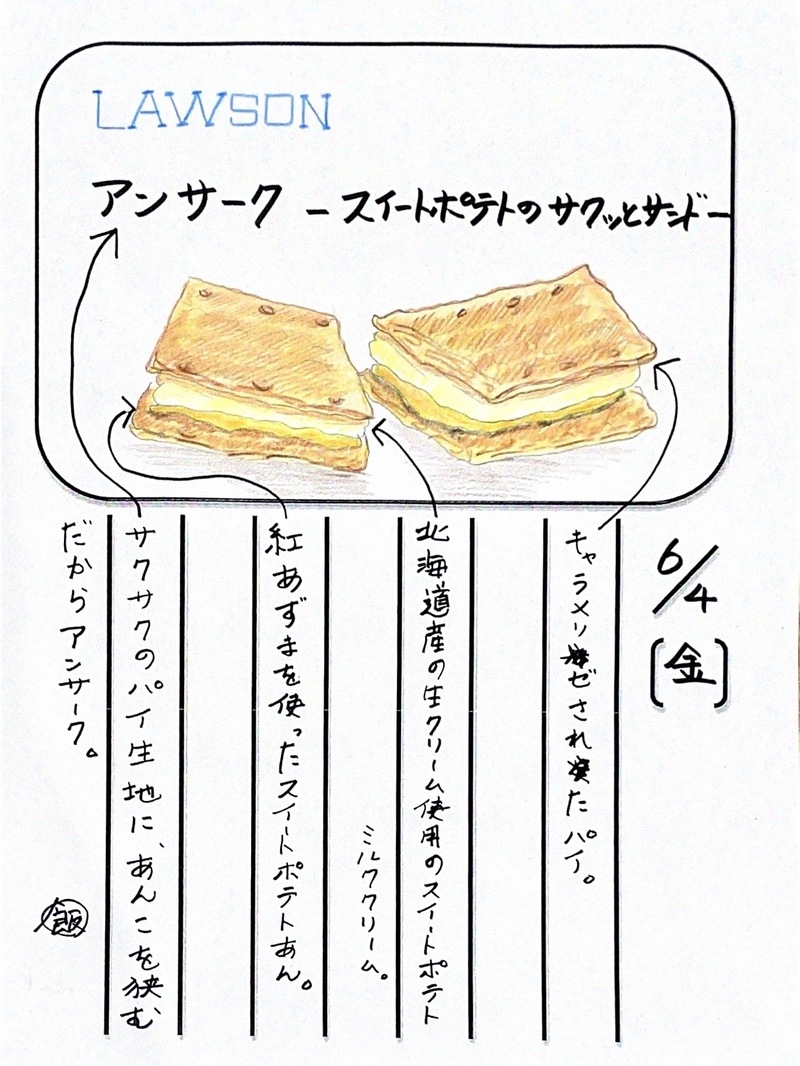 LAWSON
アンサーク ースイートポテトのサクッとサンドー
6/4
(金)
キャラメリゼされたパイ。
北海道産の生クリーム使用のスイートポテト
ミルククリーム。
紅あずまを使ったスイートポテトあん。
サクサクのパイ生地に、あんこを狭む
だからアンサーク。
飯